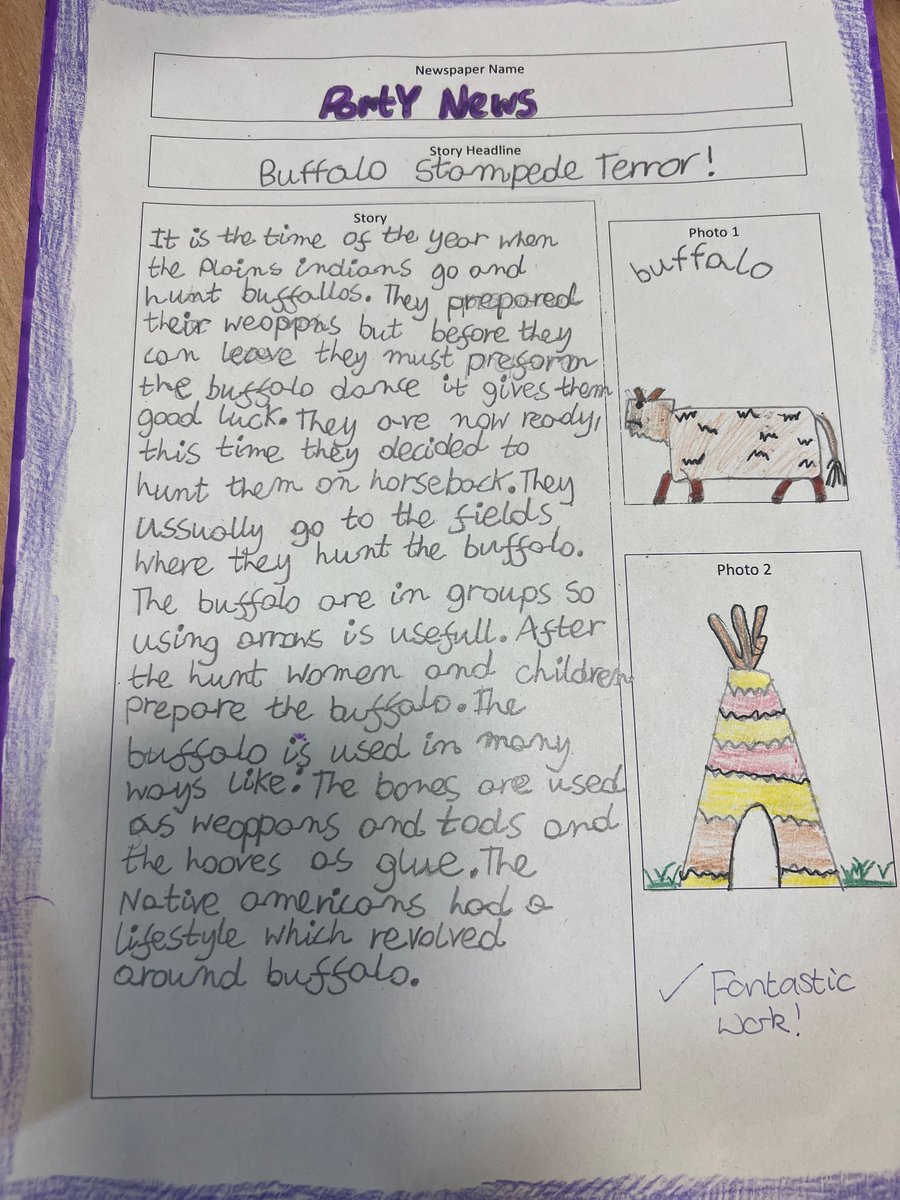 Newspaper Name
PartY News
Story Headline
Buffalo Stampede Terror!
Story
It is the time of the year when
the Plains indians go and
hunt buffallos. They prepared
their weappons but before they
can leave they must preform
the buffalo dance it gives them
good luck. They are now ready,
this time they decided to
hunt them on horseback. They
ussually go to the fields
where they hunt the buffalo.
The buffalo are in groups so
using arrows is usefull. After
the hunt women and children
prepare the buffalo. The
buffalo is used in many
ways like: The bones are used
as weappons and tools and
the hooves as glue. The
Native americans had a
lifestyle which revolved
around buffalo.
Photo 1
buffalo
Photo 2
✓ Fantastic
work!